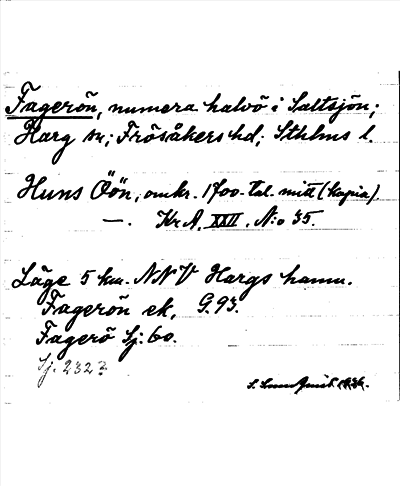 Fagerön, numera halvö i Saltsjön;
Harg sn; Frösåkers hd; Sthlms l.
Huns Öön, omkr. 1700-tal. mitt (kopia).
—. Kr A. XXII. N:o 35.
Läge 5 km. NNV Hargs hamn.
Fagerön ek. G. 93.
Fagerö Sj: 60.
Sj. 2323
S. 1936.